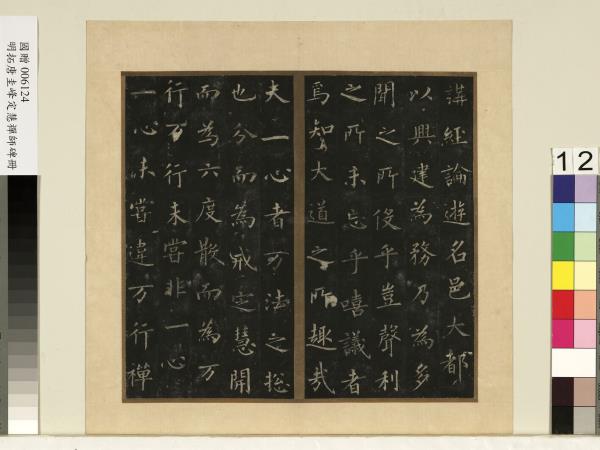 講經論遊名邑大都
以興建為務乃為多
聞之所伇乎豈聲利
之所未忘乎嘻議者
焉知大道之所趣哉
夫一心者万法之捴
也分而為戒定慧開
而為六度散而為万
行万行未嘗非一心
一心未嘗違万行禪
國贈 006124
明拓唐圭峰定慧禪師碑冊
1 2